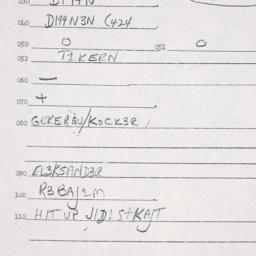 030 D144N
040 D144N3N C424
050 O 051 O
052 T1KERN
060 —
070 +
080 GEKERQU/KOCK3R
090 EL3KSAND3R
100 R3BAJ1M
110 HIT UP J1D1 S+KAJT